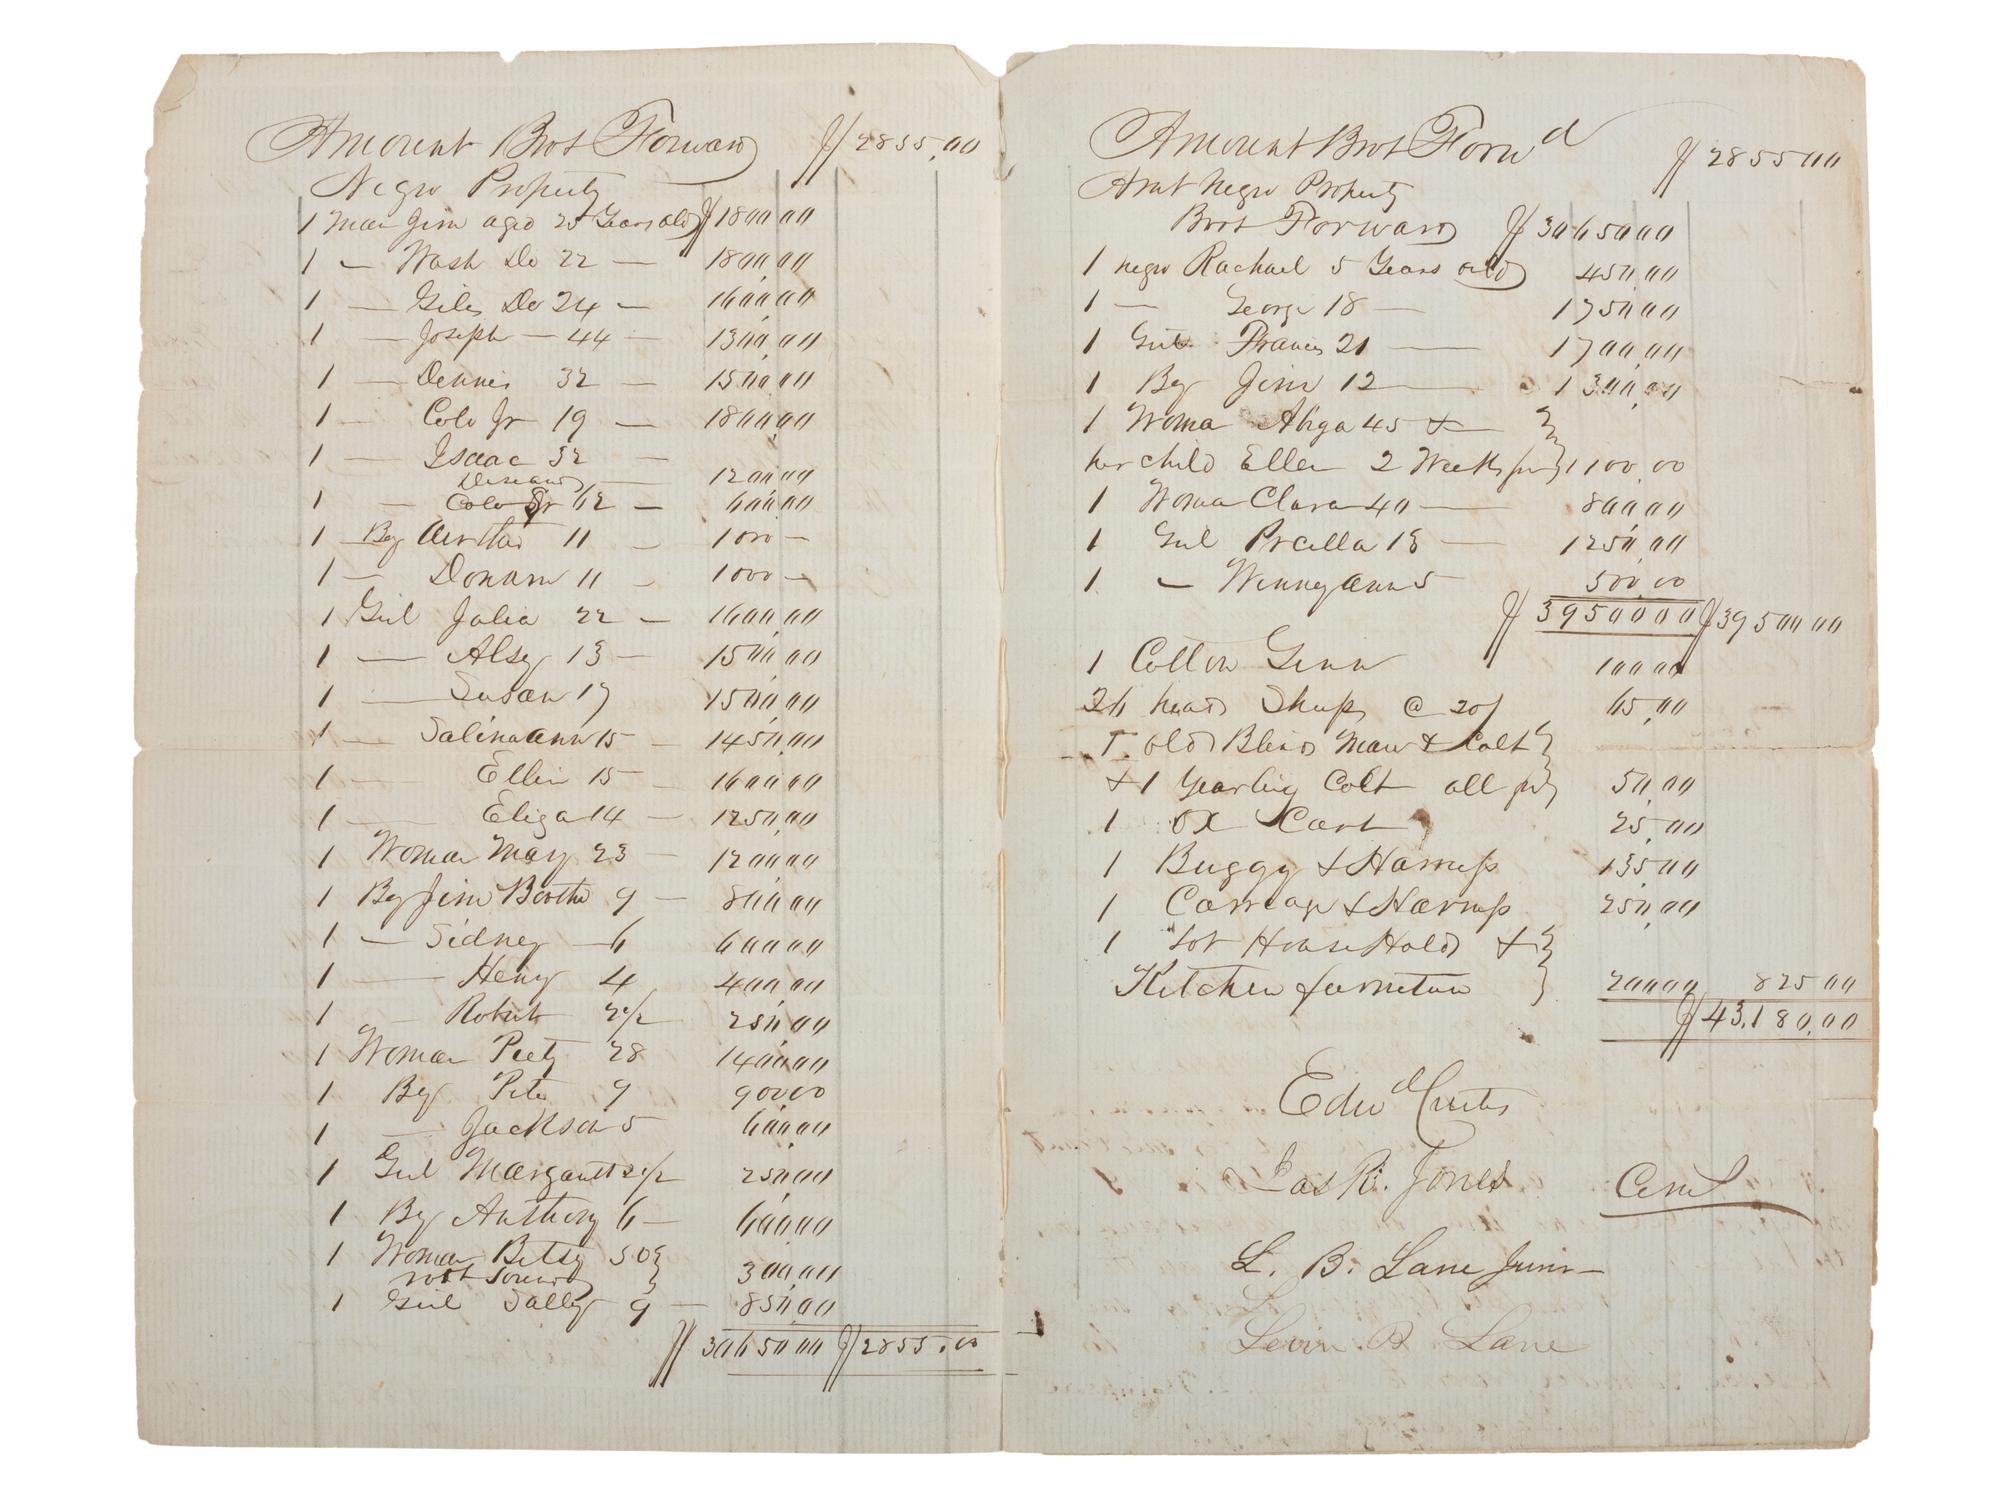 Amount Brot Forward $2855.00
Negro Property
1 Man Jim aged 25 Years old $1800.00
1 — Wash Do 22 — 1800.00
1 — Giles Do 24 — 1600.00
1 — Joseph — 44 — 1300.00
1 — Dennis 32 — 1500.00
1 — Colo Jr 19 — 1800.00
1 — Isaac 32 —
Diseased — 1200.00
1 — Colo Sr 62 — 600.00
1 Boy 11 — 1000 —
1 — 11 — 1000 —
1 Girl Julia 22 — 1600.00
1 — Alsey 13 — 1500.00
1 — Susan 17 1500.00
1 — Salina ann 15 — 1450.00
1 — Ellen 15 — 1600.00
1 — Eliza 14 — 1250.00
1 Woman Mary 23 — 1200.00
1 Boy Jim Boothe 9 — 800.00
1 — Sidney — 6 600.00
1 — Henry 4 400.00
1 — Robert 2 1/2 250.00
1 Woman 28 1400.00
1 Boy Pete 9 900.00
1 — Jackson 5 600.00
1 Girl Margarett 2 1/2 250.00
1 Boy Anthony 6 — 600.00
1 Woman Betsy 50 }
not sound } 300.00
1 Girl Sally 9 — 850.00
$30650.00 $2855.00
Amount Brot Forwd $2855.00
Amt Negro Property
Brot Forward $30650.00
1 negro Rachael 5 Years old 450.00
1 — George 18 — 1750.00
1 Girl Francis 21 — 1700.00
1 Boy Jim 12 — 1300.00
1 Woman 45 & — }
her child Ellen 2 Weeks } 1100.00
1 Woman Clara 40 — 800.00
1 Girl Prcilla 18 — 1250.00
1 — Winney ann 5 500.00
$39500.00 $39500.00
1 Cotton Ginn 100.00
26 head Sheep @ 20/ 65.00
1 old Blind Mare & Colt }
& 1 Yearling Colt all for } 50.00
1 Ox Cart 25.00
1 Buggy & Harness 135.00
1 Carriage & Harness 250.00
1 Lot House Hold & }
Kitchen furneture } 200.00 825.00
$43,180.00
Edwd Curtis
Jas R. Jones
L. B. Lane Junr —
Levin B Lane